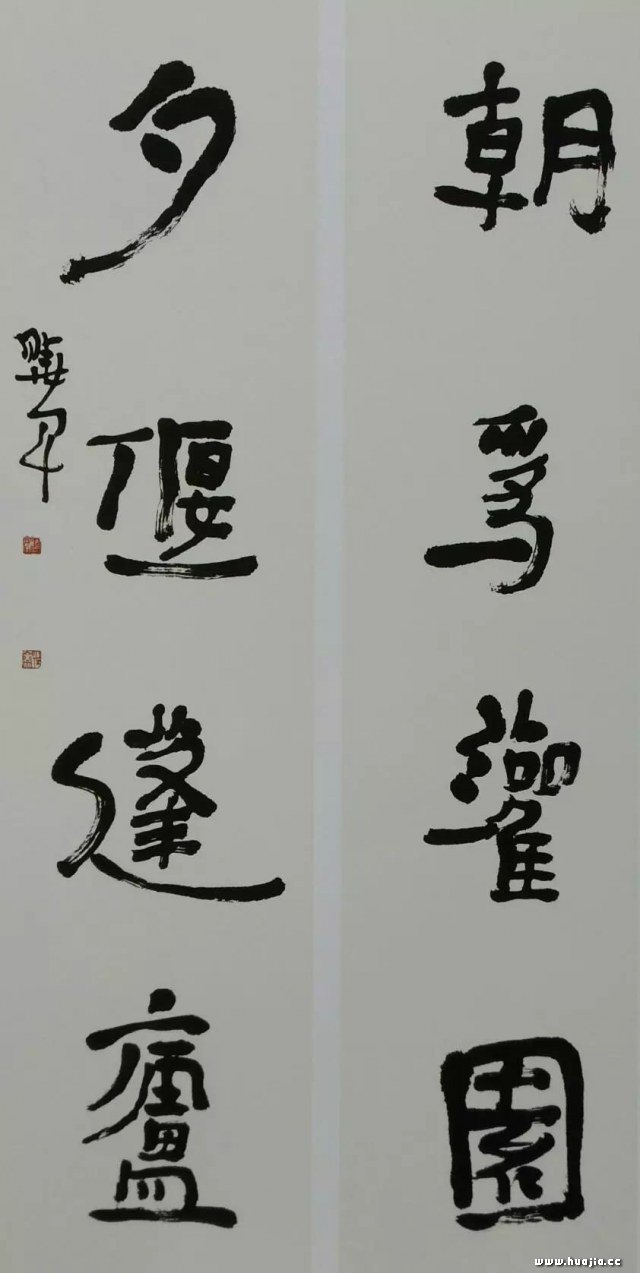 朝爲灌園
夕偃蓬廬
www.huajia.cc